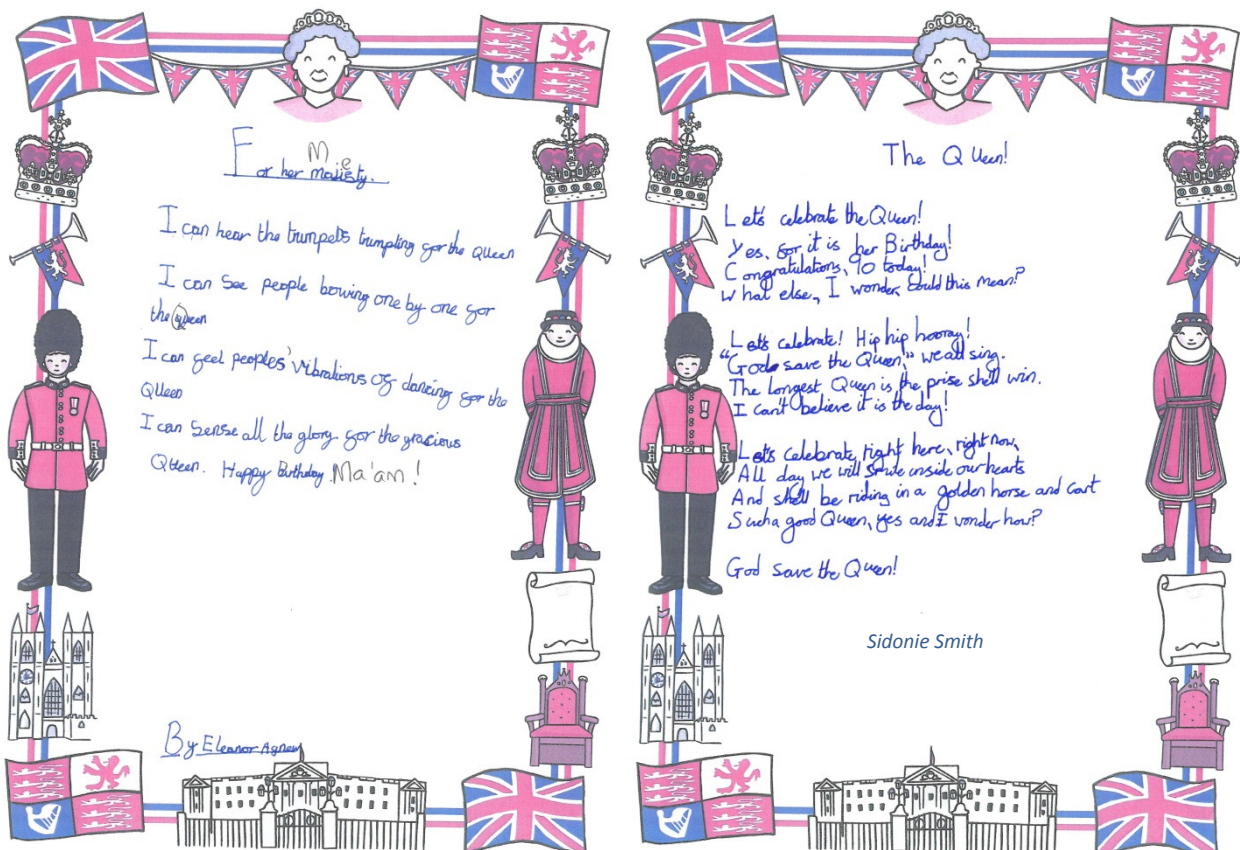 For her Majesty.
I can hear the trumpets trumpting for the Queen
I can See people bowing one by one for
the queen
I can feel peoples' vibrations of dancing for the
QUeen
I can Sense all the glory for the gracious
Queen. Happy Birthday Ma'am!
By Eleanor Agnew
The QUeen!
Let's celebrate the Queen!
Yes, for it is her Birthday!
Congratulations, 90 today!
What else, I wonder, could this mean?
Let's celebrate! Hip hip hooray!
"God save the Queen," we all sing.
The longest Queen is the prise she'll win.
I can't believe it is the day!
Let's celebrate, right here, right now,
All day we will smile inside our hearts
And she'll be riding in a golden horse and cart
Such a good Queen, yes and I wonder how?
God save the Queen!
Sidonie Smith